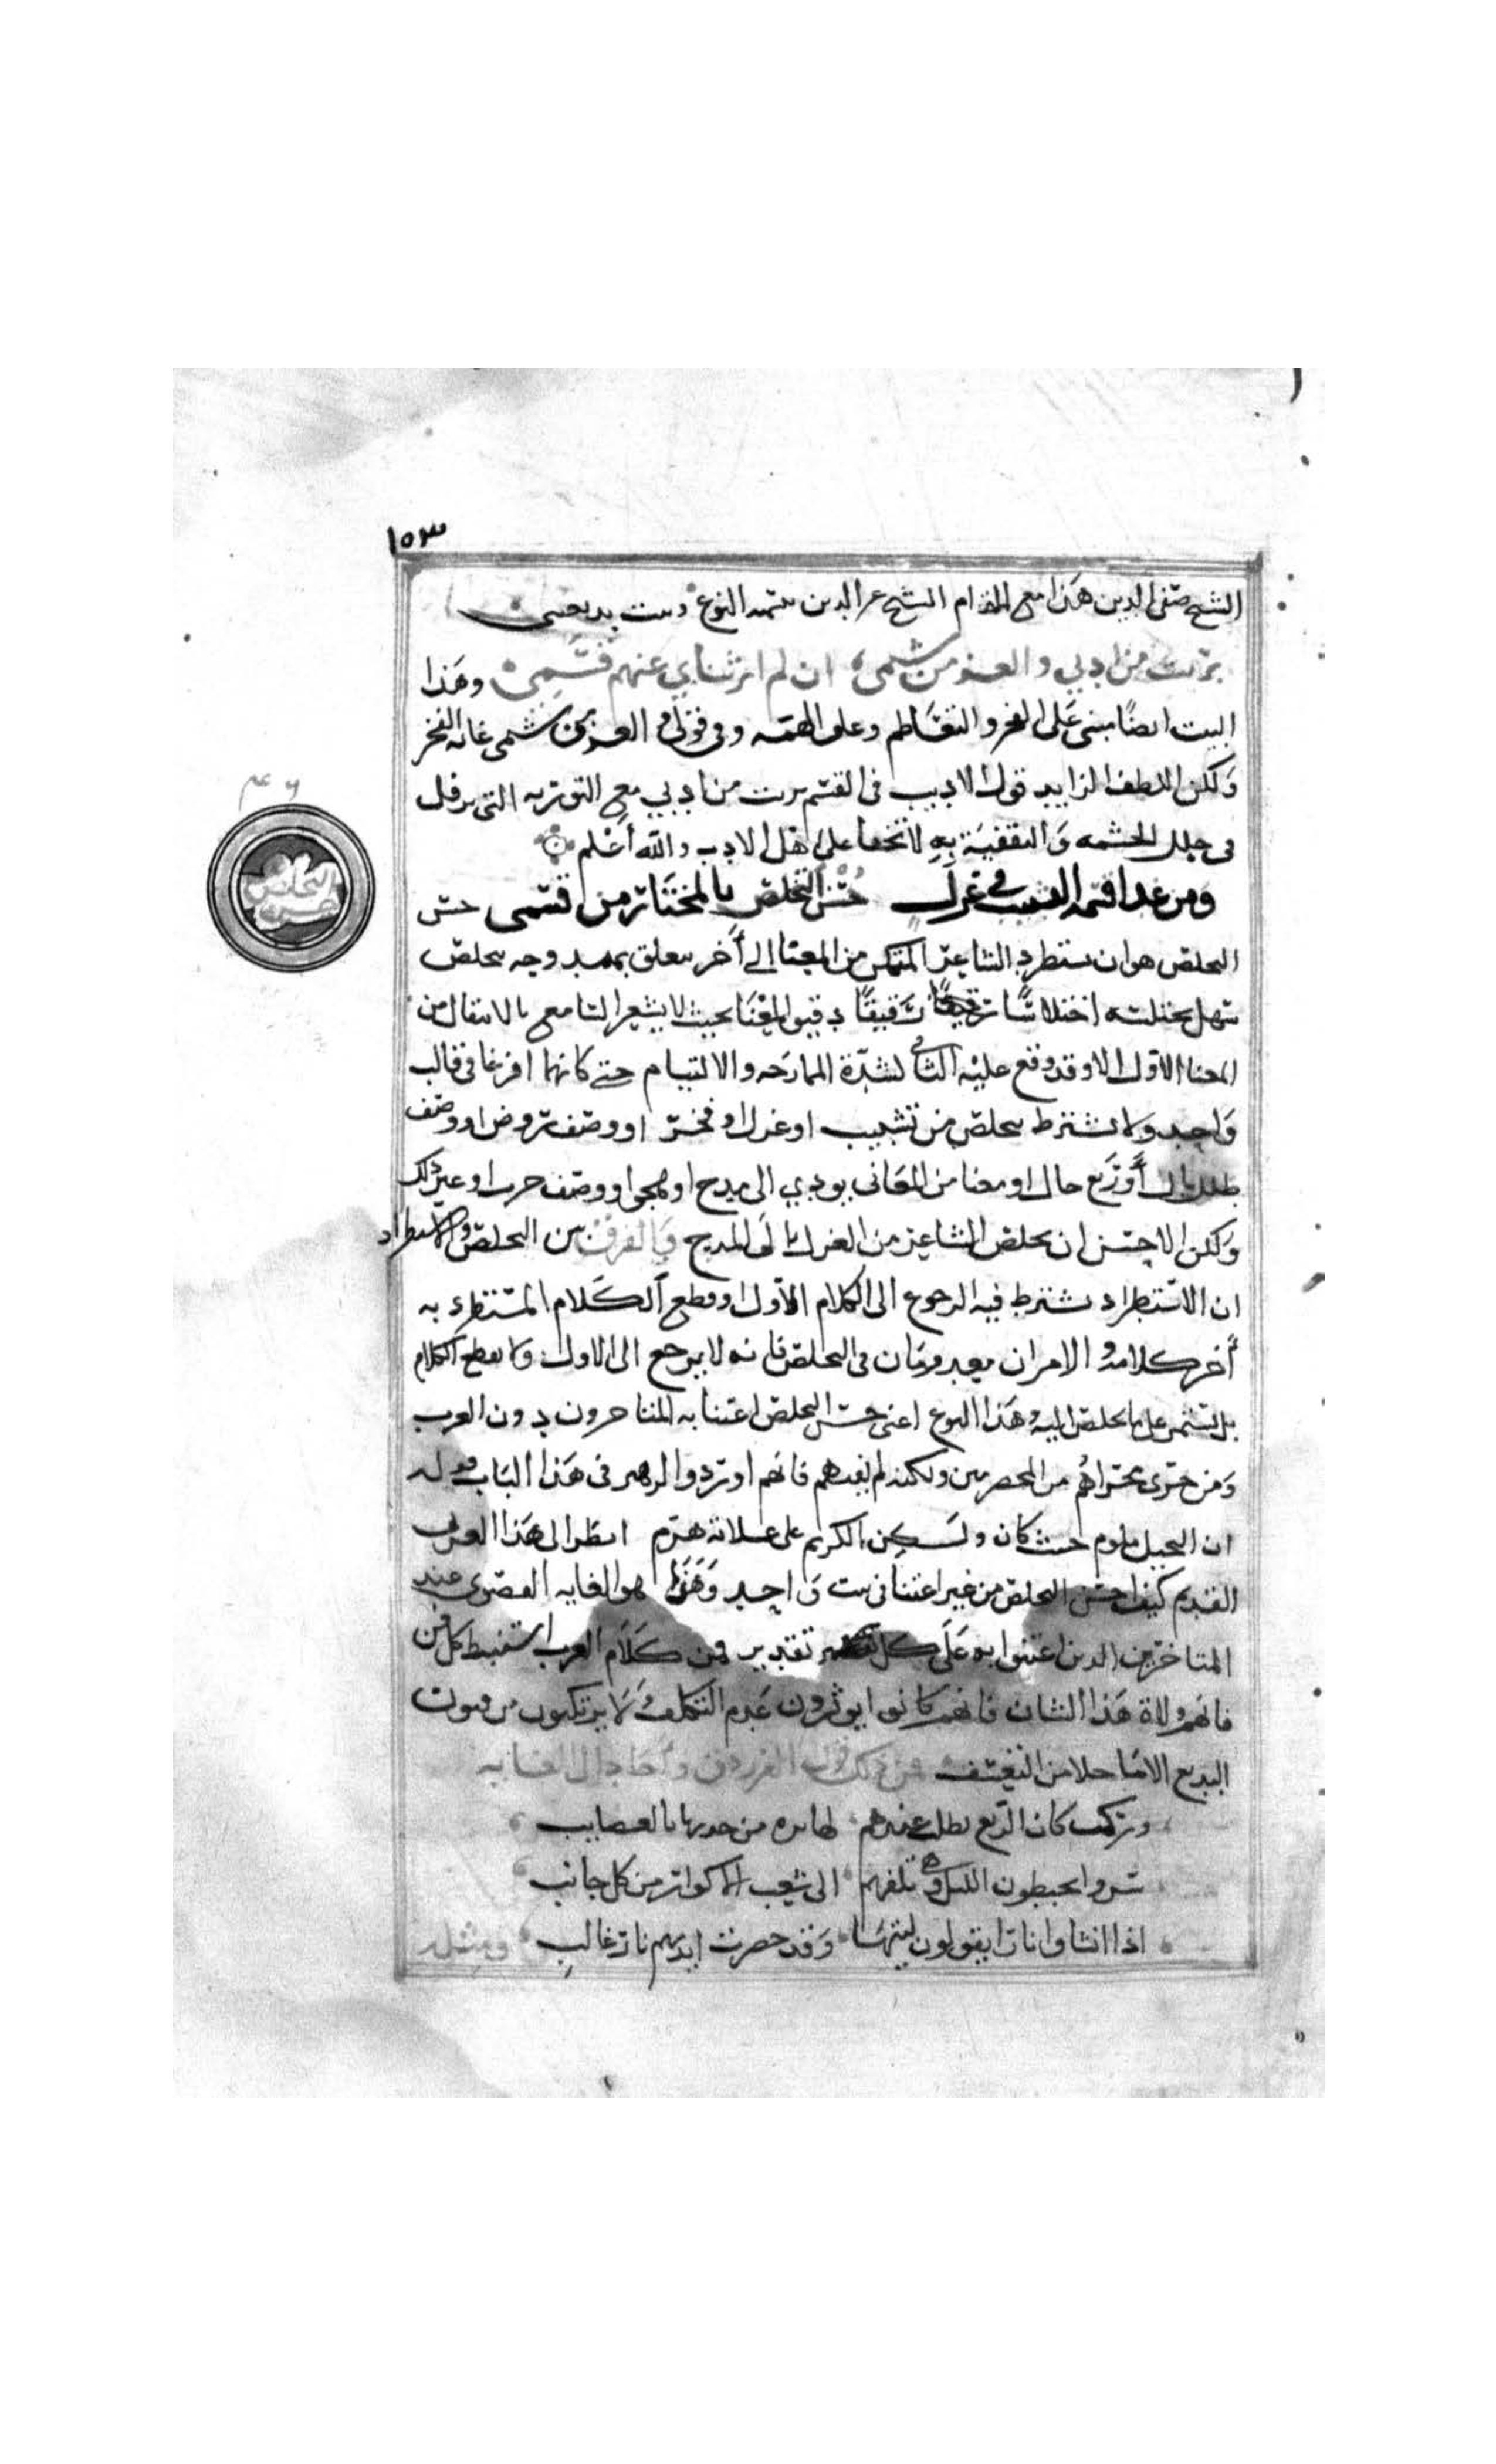 ١٥٣
الشيخ صفى الدين هذا مع المقام الشيخ عز الدين بتسميه النوع وبيت بديعيتى
برئت من ادبي والعز من شيمى ان لم ابر بناي عنهم قسمي وهذا
البيت ايضًا مبنى على الفخر والتعاظم وعلو الهمه وفي قولى والعز من شيمى غايه الفخر
ولكن اللطف الزايد قول الاديب فى القسم برئت من ادبي مع التوريه التى ترفل
فى حلل الحشمه والتقفية به لا تخفا على اهل الادب والله أعلم
ومن غدا قسمه التشبيب في غزل حسن التخلص بالمختار من قسمى حسن
التخلص هو ان يستطرد الشاعر المتمكن من المعنا إلى أخر يتعلق بممدوحه بتخلص
سهل يختلسه اختلاسًا رشيقًا دقيق المعنا بحيث لا يشعر السامع بالانتقال من
المعنا الأول الا وقد وقع عليه الثانى لشدة الممازجه والالتيام حتى كانهما افرغا فى قالب
واحد ولا يشترط بتخلص من تشبيب او غزل او فخر او وصف روض او وصف
طلل بال أو ربع خال او معنا من المعانى يودي الى مدح او هجو او وصف حرب او غير ذلك
ولكن الاحسن ان يتخلص الشاعر من الغزل إلى المديح والفرق بين التخلص والاستطراد
ان الاستطراد يشترط فيه الرجوع الى الكلام الأول او قطع الكلام المستطرد به
أخر كلامه والامران معدومان فى التخلص فانه لا يرجع الى الاول ولا يقطع الكلام
بل يستمر على ما يتخلص اليه وهذا النوع اعنى حسن التخلص اعتنا به المتاخرون دون العرب
ومن جرى مجراهم من المخضرمين ولكنه لم يفتهم فانهم اوردوا لزهير فى هذا الباب قوله
ان البخيل ملوم حيث كان ولـكن الكريم على علاته هرم انظر الى هذا العربى
القديم كيف احسن التخلص من غير اعتنا فى بيت واحد وهذا هو الغايه القصوى عند
المتاخرين الذين اعتنوا به على كل تقدير فمن كلام العرب استنبط كل فن
فانهم ولاة هذا الشان فانهم كانوا يوثرون عدم التكلف ولا يرتكبون من فنون
البديع الاما خلا من التعسف فمن ذلك قول الفرزدق واجاد الى الغايه
وركب كان الريع تطلب عندهم لها تره من جذبها بالعصايب
سروا يخبطون الليل وهى تلفهم الى شعب الاكوار من كل جانب
اذا انشاوا نارا يقولون ليتها وقد حصرت ايديهم نار غالب ومثله